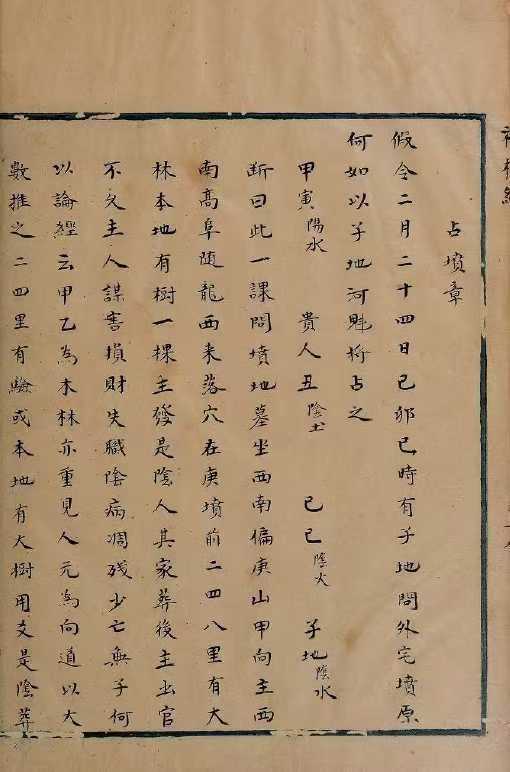 占墳章
假令二月二十四日己卯巳時有子地問外宅墳原
何如以子地河魁将占之
甲寅陽水 貴人丑陰土 己巳陰火 子地陰水
斷曰此一課問墳地墓坐西南偏庚山甲向主西
南高阜随龍西来落穴在庚墳前二四八里有大
林本地有樹一棵主發是陰人其家葬後主出官
不久主人謀害損財失職陰病凋残少亡無子何
以論經云甲乙為木林亦重見人元為向道以大
數推之二四里有驗或本地有大樹用爻是陰葬